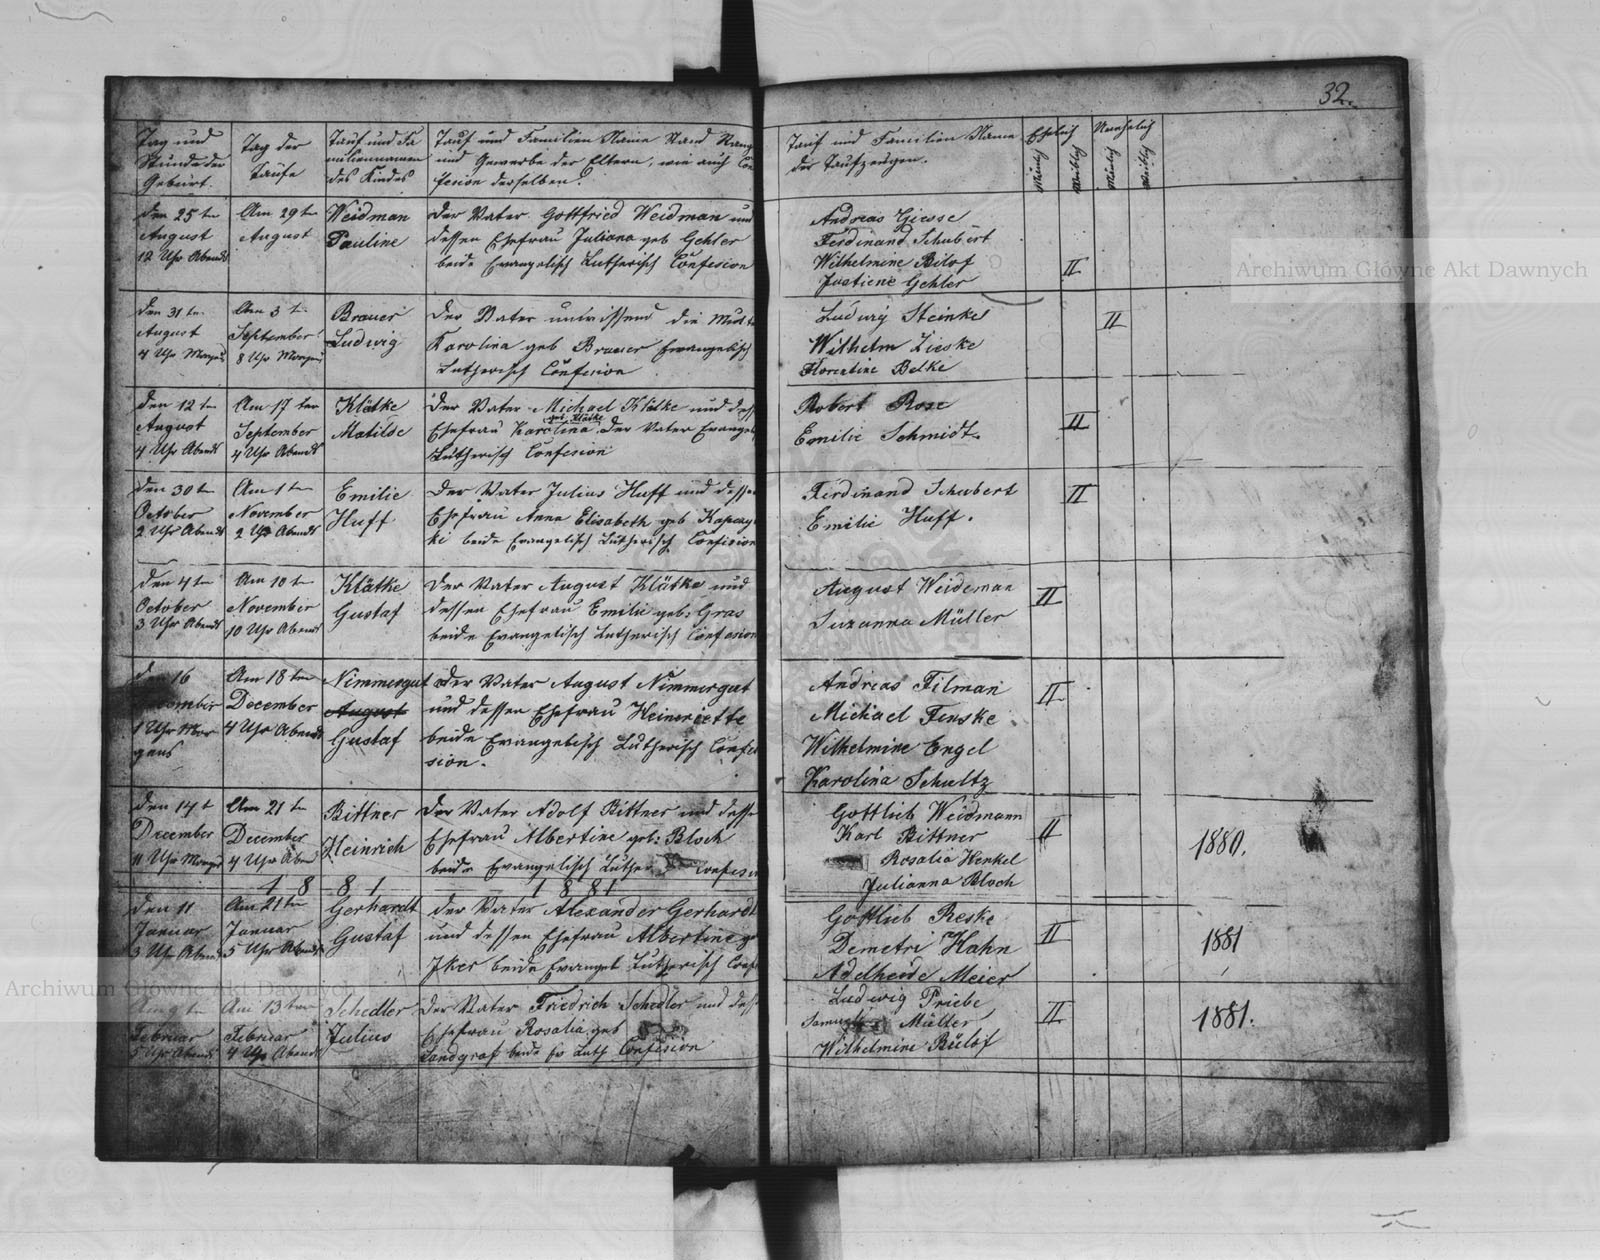 32.
Tag und
Stunde der
Geburt.
Tag der
Taufe
Tauf und Fa
miliennamen
des Kindes
Tauf und Familien Name Stand Rang
und Gewerbe der Eltern, wie auch Con
fesion derselben.
Tauf und Familien Name
der Taufzeugen.
Ehelich
Unehelich
Mänlich
Weiblich
Mänlich
Weiblich
den 25 ten
August
12 Uhr Abends
Am 29 ten
August
Weidman
Pauline
der Vater Gottfried Weidman und
dessen Ehefrau Juliana geb Gehler
beide Evangelisch Lutherisch Confesion
Andreas Giesse
Ferdinand Schubert
Wilhelmine Bilof
Justiene Gehler
II
den 31 ten
August
4 Uhr Morgens
Am 3 ten
September
8 Uhr Morgens
Brauer
Ludwig
der Vater unwissend die Mutter
Karolina geb Brauer Evangelisch
Lutherisch Confesion
Ludwig Steinke
Wilhelm Zieske
Florentine Belke
II
den 12 ten
August
4 Uhr Abends
Am 17 ten
September
4 Uhr Abends
Klätke
Matilde
der Vater Michael Klätke und dess
geb. Klätke
Ehefrau Karolina der Vater Evangel
Lutherisch Confesion
Robert Rose
Emilie Schmidt.
II
den 30 ten
October
2 Uhr Abends
Am 1 ten
November
2 Uhr Abends
Emilie
Huff
der Vater Julius Huff und dessen
Ehefrau Anna Elisabeth geb Kapczy
ki beide Evangelisch Lutherisch Confesion
Ferdinand Schubert
Emilie Huff.
II
den 4 ten
October
3 Uhr Abends
Am 10 ten
November
10 Uhr Abends
Klätke
Gustaf
der Vater August Klätke und
dessen Ehefrau Emilie geb: Gras
beide Evangelisch Lutherisch Confesion
August Weideman
Suzanna Müller
II
den 16
1 Uhr Mor
gens
Am 18 ten
December
4 Uhr Abends
Nimmergut
August
Gustaf
der Vater August Nimmergut
und dessen Ehefrau Heinriette
beide Evangelisch Lutherisch Confe
sion.
Andreas Filman
Michael Finske
Wilhelmine Engel
Karolina Schultz
II
den 14 t
December
11 Uhr Morgens
Am 21 ten
December
4 Uhr Abend
Bittner
Heinrich
der Vater Adolf Bittner und desse
Ehefrau Albertine geb: Bloch
beide Evangelisch Luther Confesi
Gottlieb Weidmann
Karl Bittner
Rosalia Henkel
Julianna Bloch
II
1880.
1 8 8 1
1 8 8 1
den 11
Januar
3 Uhr Abends
Am 21 ten
Januar
5 Uhr Abends
Gerhardt
Gustaf
der Vater Alexander Gerhardt
und dessen Ehefrau Albertine g
Iker beide Evangel Lutherisch Conf
Gottlieb Reske
Demetri Hahn
Adelheide Meier
II
1881
Am 9 ten
Februar
5 Uhr Abends
Am 13 ten
Februar
4 Uhr Abends
Schedler
Julius
der Vater Friedrich Schedler und dess
Ehefrau Rosalia geb
Landgraf beide Ev Luth Confesion
Ludwig Priebe
Samuel Müller
Wilhelmine Bülof
II
1881.
Archiwum Główne Akt Dawnych
Archiwum Główne Akt Dawnych